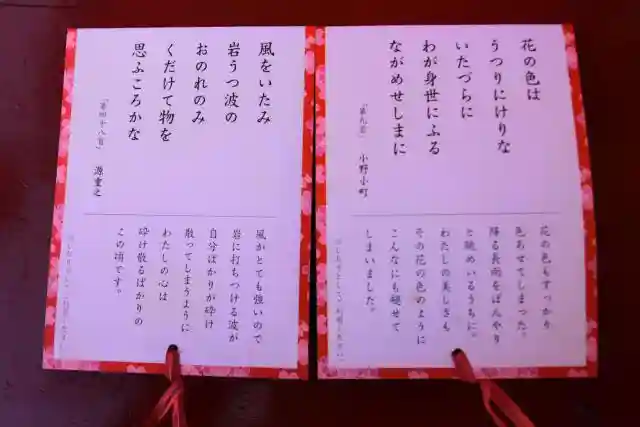 花の色は
うつりにけりな
いたづらに
わが身世にふる
ながめせしまに
「第九首」 小野小町
花の色もすっかり
色あせてしまった。
降る長雨をぼんやり
と眺めいるうちに。
わたしの美しさも
その花の色のように
こんなにも褪せて
しまいました。
風をいたみ
岩うつ波の
おのれのみ
くだけて物を
思ふころかな
「第四十八首」 源重之
風がとても強いので
岩に打ちつける波が
自分ばかりが砕け
散ってしまうように
わたしの心は
砕け散るばかりの
この頃です。